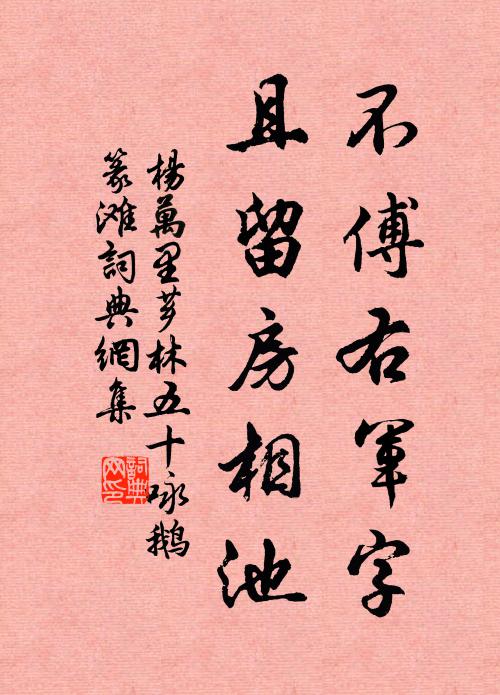 不傅右軍字
且留房相池
楊萬里芗林五十咏鵝
篆滩詞典網集
詞典網印